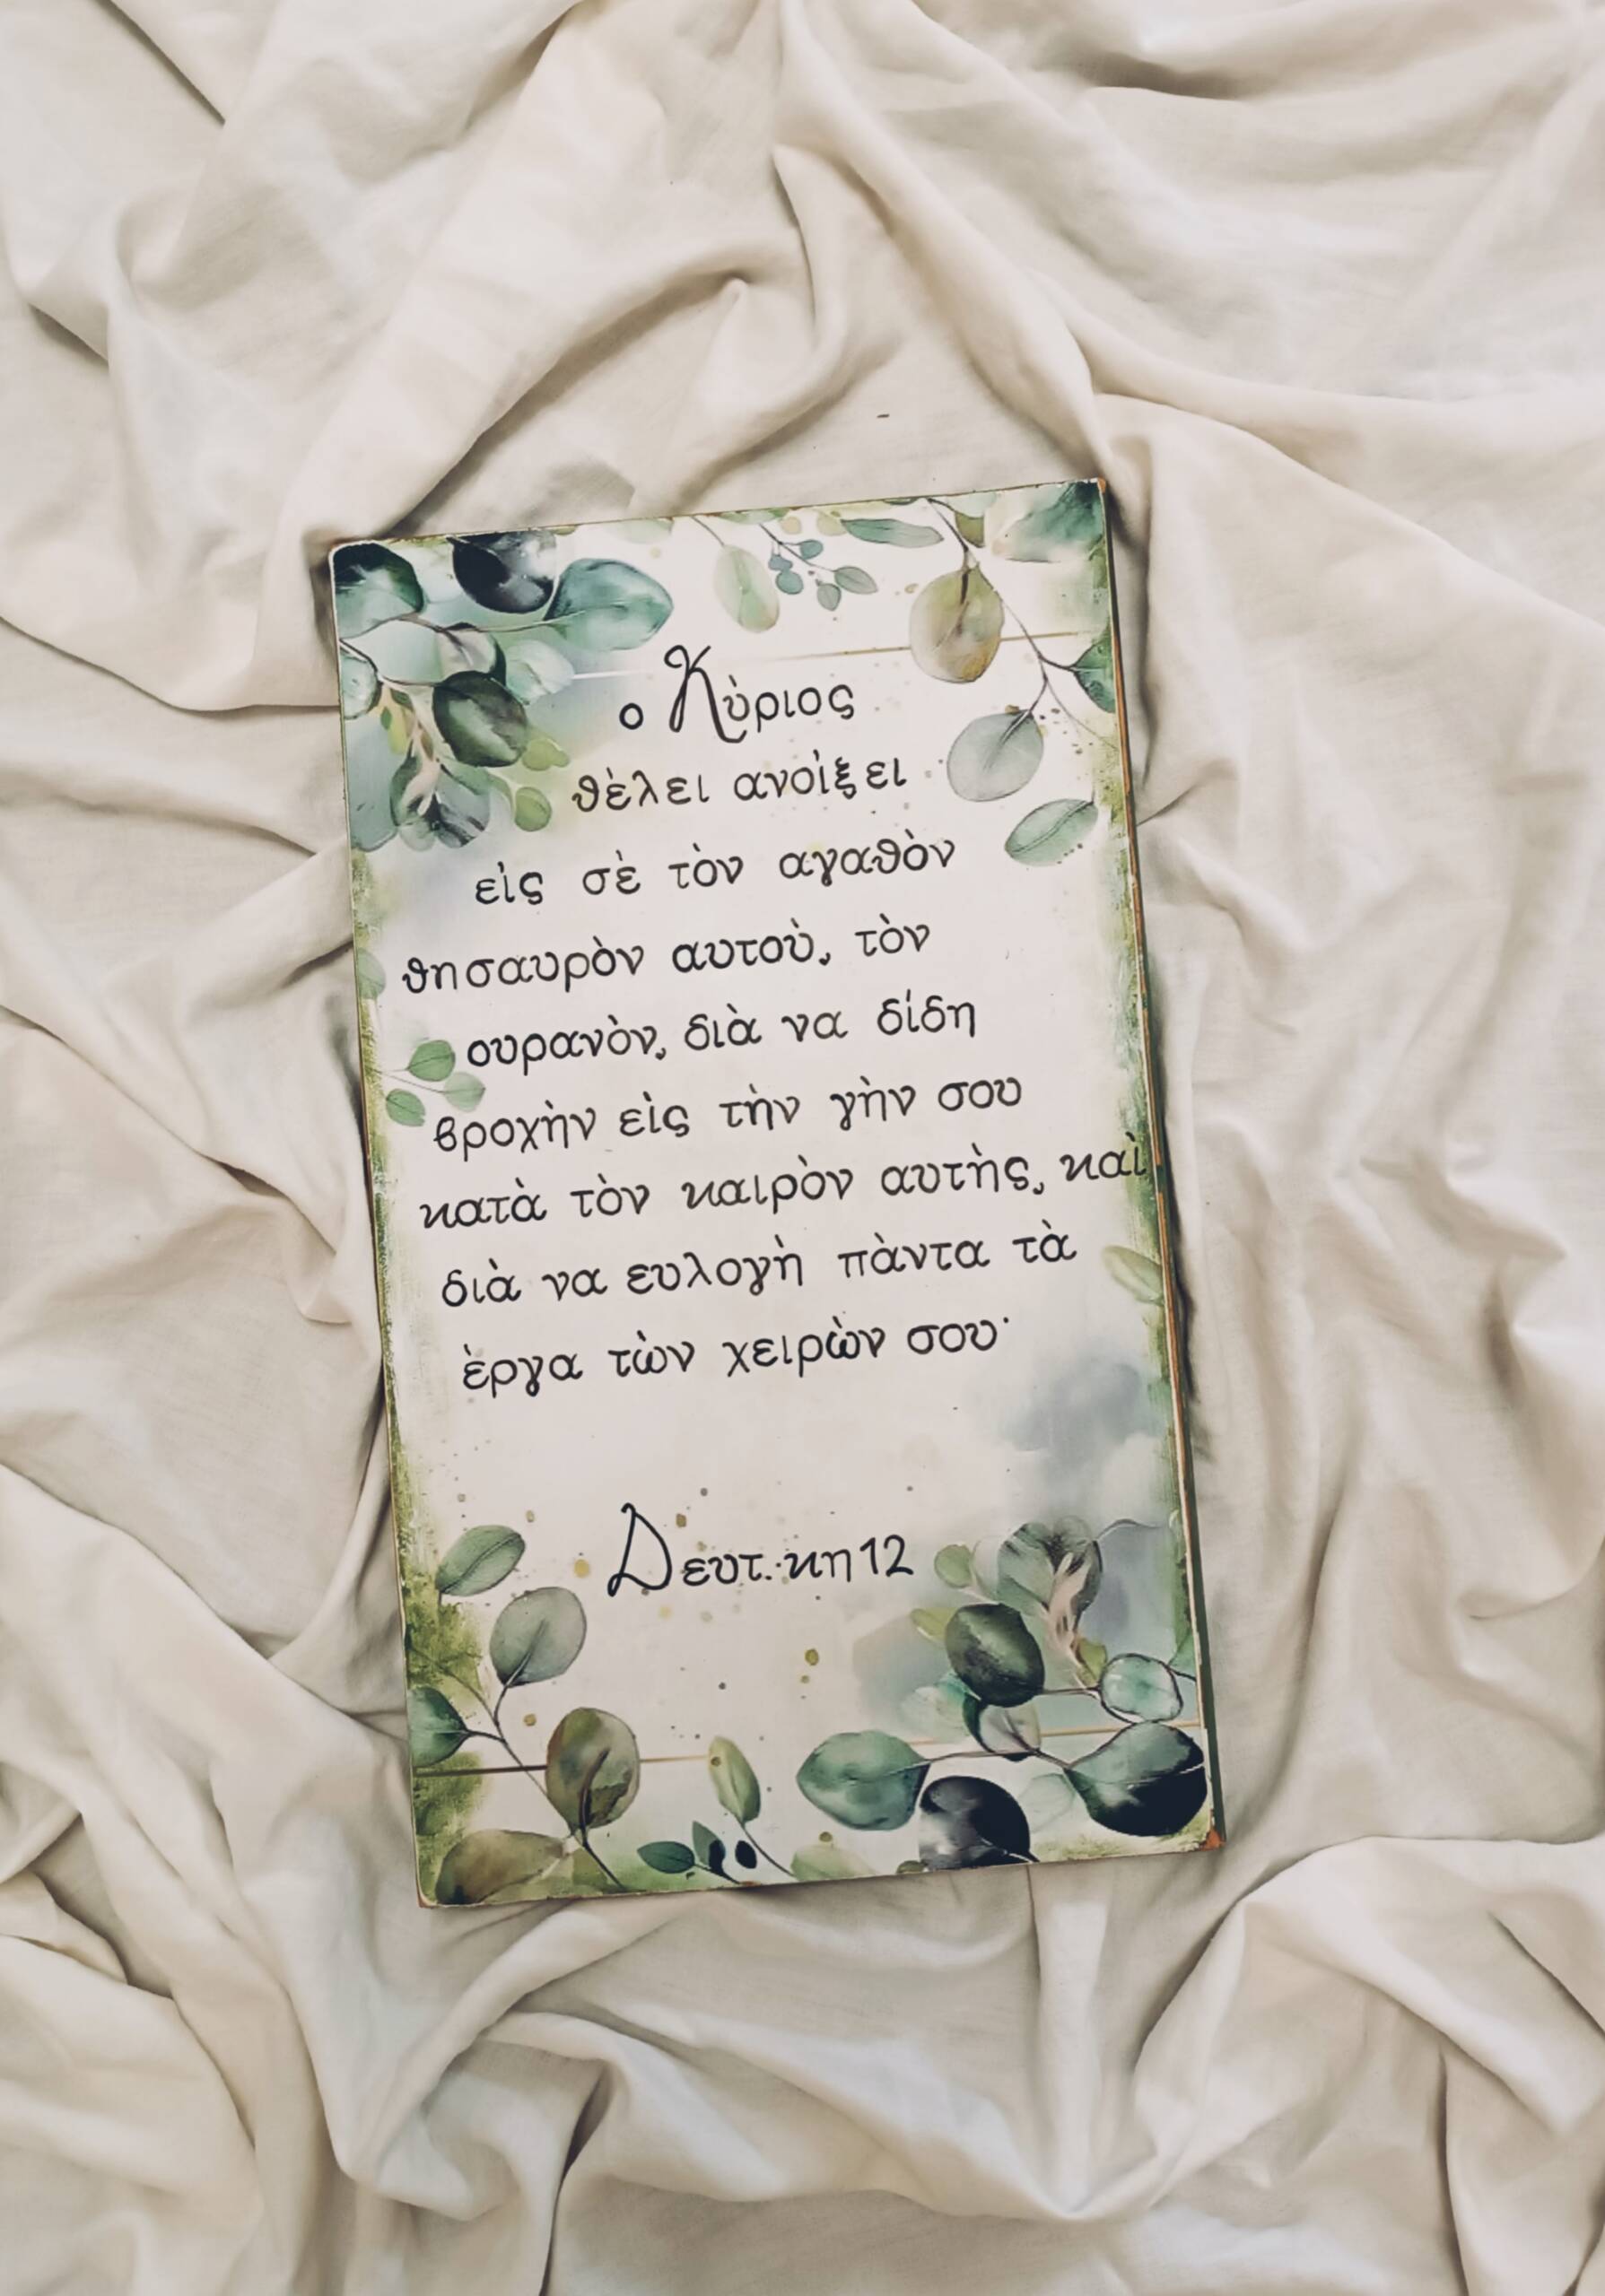 ο Κὺριος
θὲλει ανοὶξει
εὶς σὲ τὸν αγαθὸν
θησαυρὸν αυτοὺ, τὸν
ουρανὸν, διὰ να δίδη
βροχὴν εὶς τὴν γὴν σου
κατὰ τὸν καιρὸν αυτὴς, καὶ
διὰ να ευλογὴ πὰντα τὰ
ὲργα τὼν χειρὼν σου·
Δευτ. κη 12